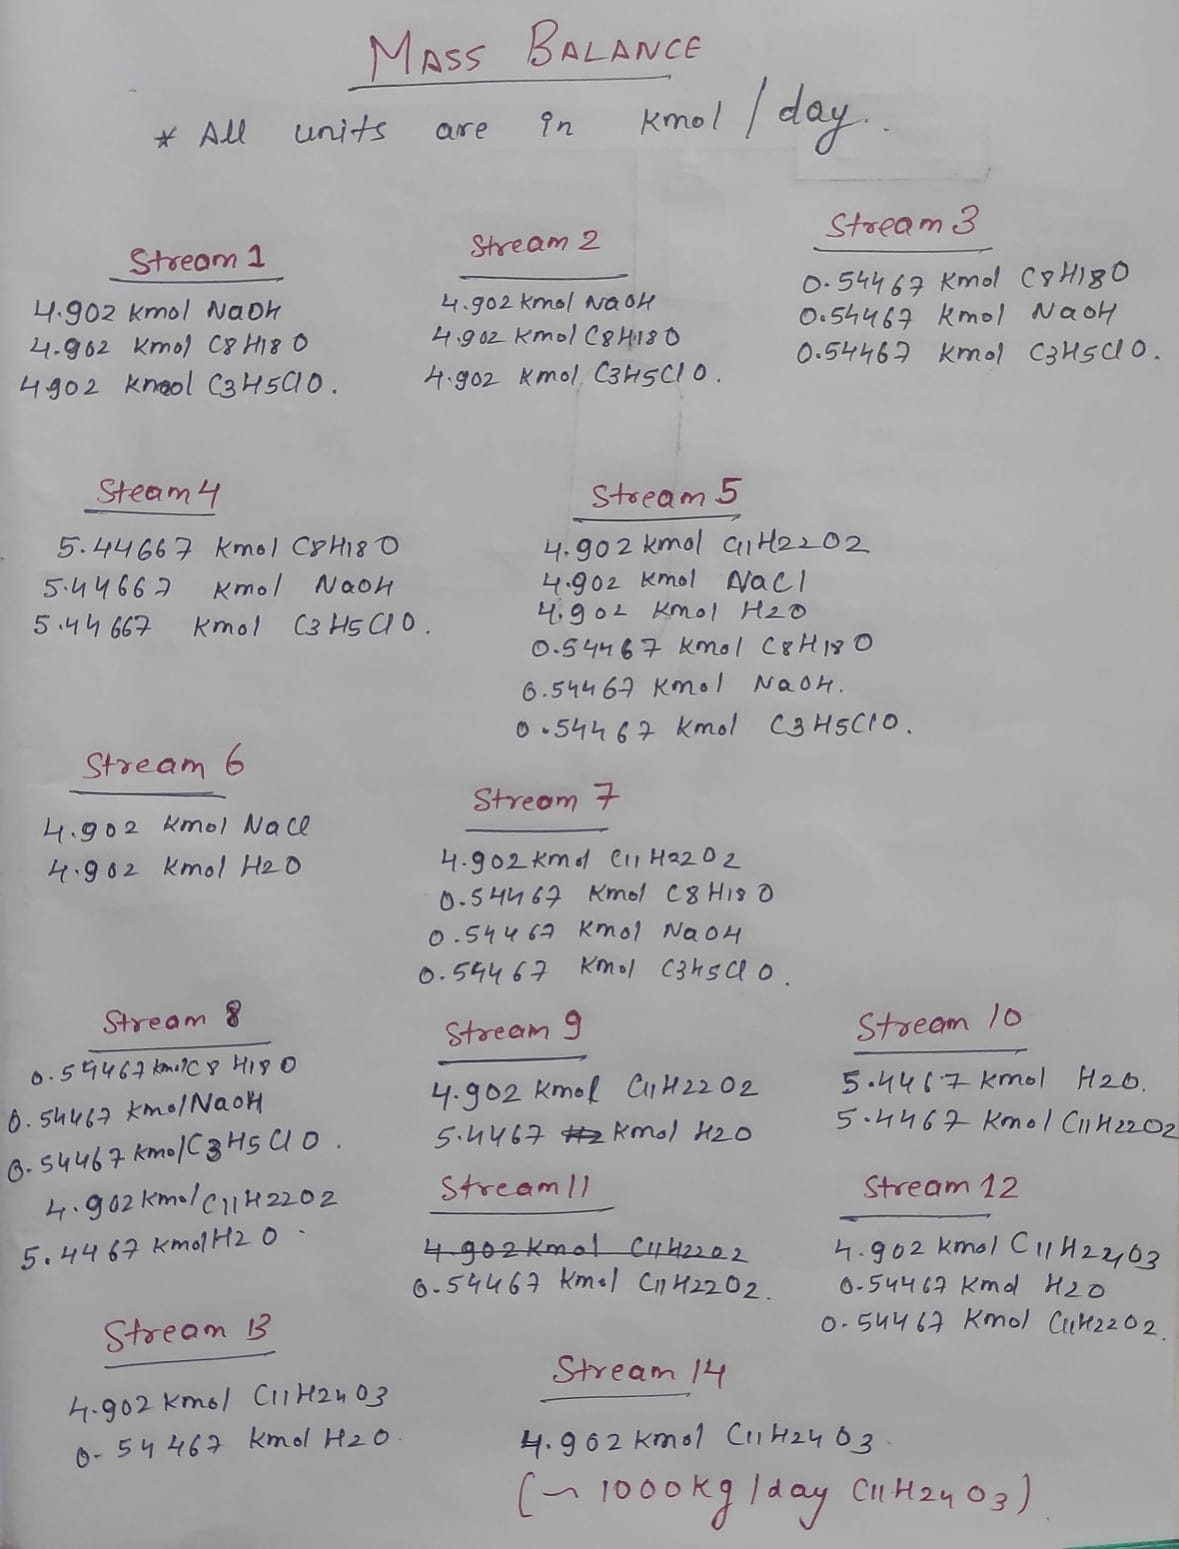 MASS BALANCE
* All units are in Kmol / day.
Stream 1
4.902 Kmol NaOH
4.902 Kmol C8H18O
4.902 Kmol C3H5ClO.
Stream 2
4.902 Kmol NaOH
4.902 Kmol C8H18O
4.902 Kmol C3H5ClO.
Stream 3
0.54467 Kmol C8H18O
0.54467 Kmol NaOH
0.54467 Kmol C3H5ClO.
Steam 4
5.44667 Kmol C8H18O
5.44667 Kmol NaOH
5.44667 Kmol C3H5ClO.
Stream 5
4.902 Kmol C11H22O2
4.902 Kmol NaCl
4.902 Kmol H2O
0.54467 Kmol C8H18O
0.54467 Kmol NaOH.
0.54467 Kmol C3H5ClO.
Stream 6
4.902 Kmol NaCl
4.902 Kmol H2O
Stream 7
4.902 Kmol C11H22O2
0.54467 Kmol C8H18O
0.54467 Kmol NaOH
0.54467 Kmol C3H5ClO.
Stream 8
0.54467 Kmol C8H18O
0.54467 Kmol NaOH
0.54467 Kmol C3H5ClO.
4.902 Kmol C11H22O2
5.4467 Kmol H2O.
Stream 9
4.902 Kmol C11H22O2
5.4467 Kmol H2O
Stream 10
5.4467 Kmol H2O.
5.4467 Kmol C11H22O2
Stream 11
4.902 Kmol C11H22O2
0.54467 Kmol C11H22O2.
Stream 12
4.902 Kmol C11H24O3
0.54467 Kmol H2O
0.54467 Kmol C11H22O2.
Stream 13
4.902 Kmol C11H24O3
0.54467 Kmol H2O.
Stream 14
4.902 Kmol C11H24O3.
(~ 1000 Kg / day C11H24O3)